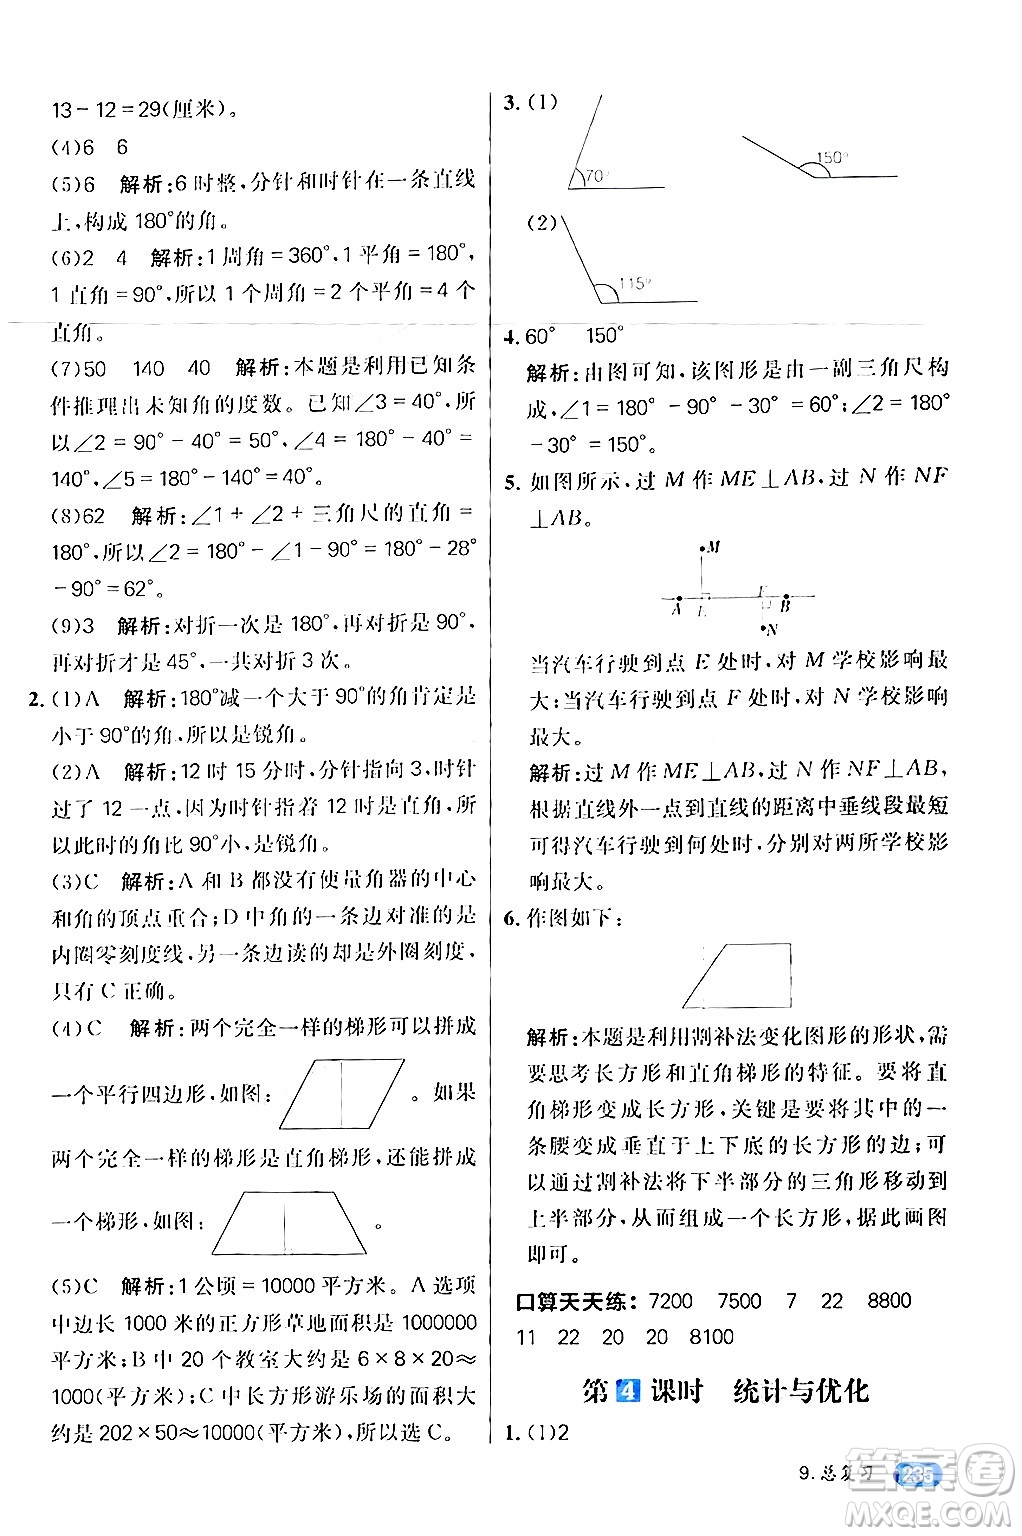 13－12＝29(厘米)。
(4)6　6
(5)6　解析:6 时整,分针和时针在一条直线
上,构成 180°的角。
(6)2　4　解析:1 周角＝360°,1 平角＝180°,
1 直角＝90°,所以 1 个周角＝2 个平角＝4 个
直角。
(7)50　140　40　解析:本题是利用已知条
件推理出未知角的度数。已知∠3＝40°,所
以∠2＝90°－40°＝50°,∠4＝180°－40°＝
140°,∠5＝180°－140°＝40°。
(8)62　解析:∠1＋∠2＋三角尺的直角＝
180°,所以∠2＝180°－∠1－90°＝180°－28°
－90°＝62°。
(9)3　解析:对折一次是 180°,再对折是 90°,
再对折才是 45°,一共对折 3 次。
2. (1)A　解析:180°减一个大于 90°的角肯定是
小于 90°的角,所以是锐角。
(2)A　解析:12 时 15 分时,分针指向 3,时针
过了 12 一点,因为时针指着 12 时是直角,所
以此时的角比 90°小,是锐角。
(3)C　解析:A 和 B 都没有使量角器的中心
和角的顶点重合;D 中角的一条边对准的是
内圈零刻度线,另一条边读的却是外圈刻度,
只有 C 正确。
(4)C　解析:两个完全一样的梯形可以拼成
一个平行四边形,如图:　。如果
两个完全一样的梯形是直角梯形,还能拼成
一个梯形,如图:　。
(5)C　解析:1 公顷＝10000 平方米。A 选项
中边长 1000 米的正方形草地面积是 1000000
平方米;B 中 20 个教室大约是 6×8×20≈
1000(平方米);C 中长方形游乐场的面积大
约是 202×50≈10000(平方米),所以选 C。
3. (1)
70°
150°
(2)
115°
4. 60°　150°
解析:由图可知,该图形是由一副三角尺构
成,∠1＝180°－90°－30°＝60°;∠2＝180°
－30°＝150°。
5. 如图所示,过 M 作 ME⊥AB,过 N 作 NF
⊥AB。
M
A　E　F　B
N
当汽车行驶到点 E 处时,对 M 学校影响最
大;当汽车行驶到点 F 处时,对 N 学校影响
最大。
解析:过 M 作 ME⊥AB,过 N 作 NF⊥AB,
根据直线外一点到直线的距离中垂线段最短
可得汽车行驶到何处时,分别对两所学校影
响最大。
6. 作图如下:
解析:本题是利用割补法变化图形的形状,需
要思考长方形和直角梯形的特征。要将直
角梯形变成长方形,关键是要将其中的一
条腰变成垂直于上下底的长方形的边;可
以通过割补法将下半部分的三角形移动到
上半部分,从而组成一个长方形,据此画图
即可。
口算天天练: 7200　7500　7　22　8800
11　22　20　20　8100
第 4 课时　统计与优化
1. (1)2
9.总复习　235
答案圈
MXQE.COM